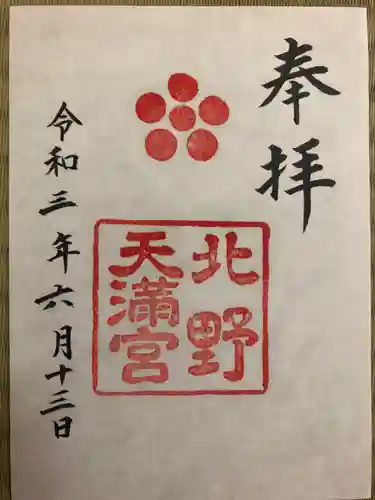 奉拝
北野
天満宮
令和三年六月十三日